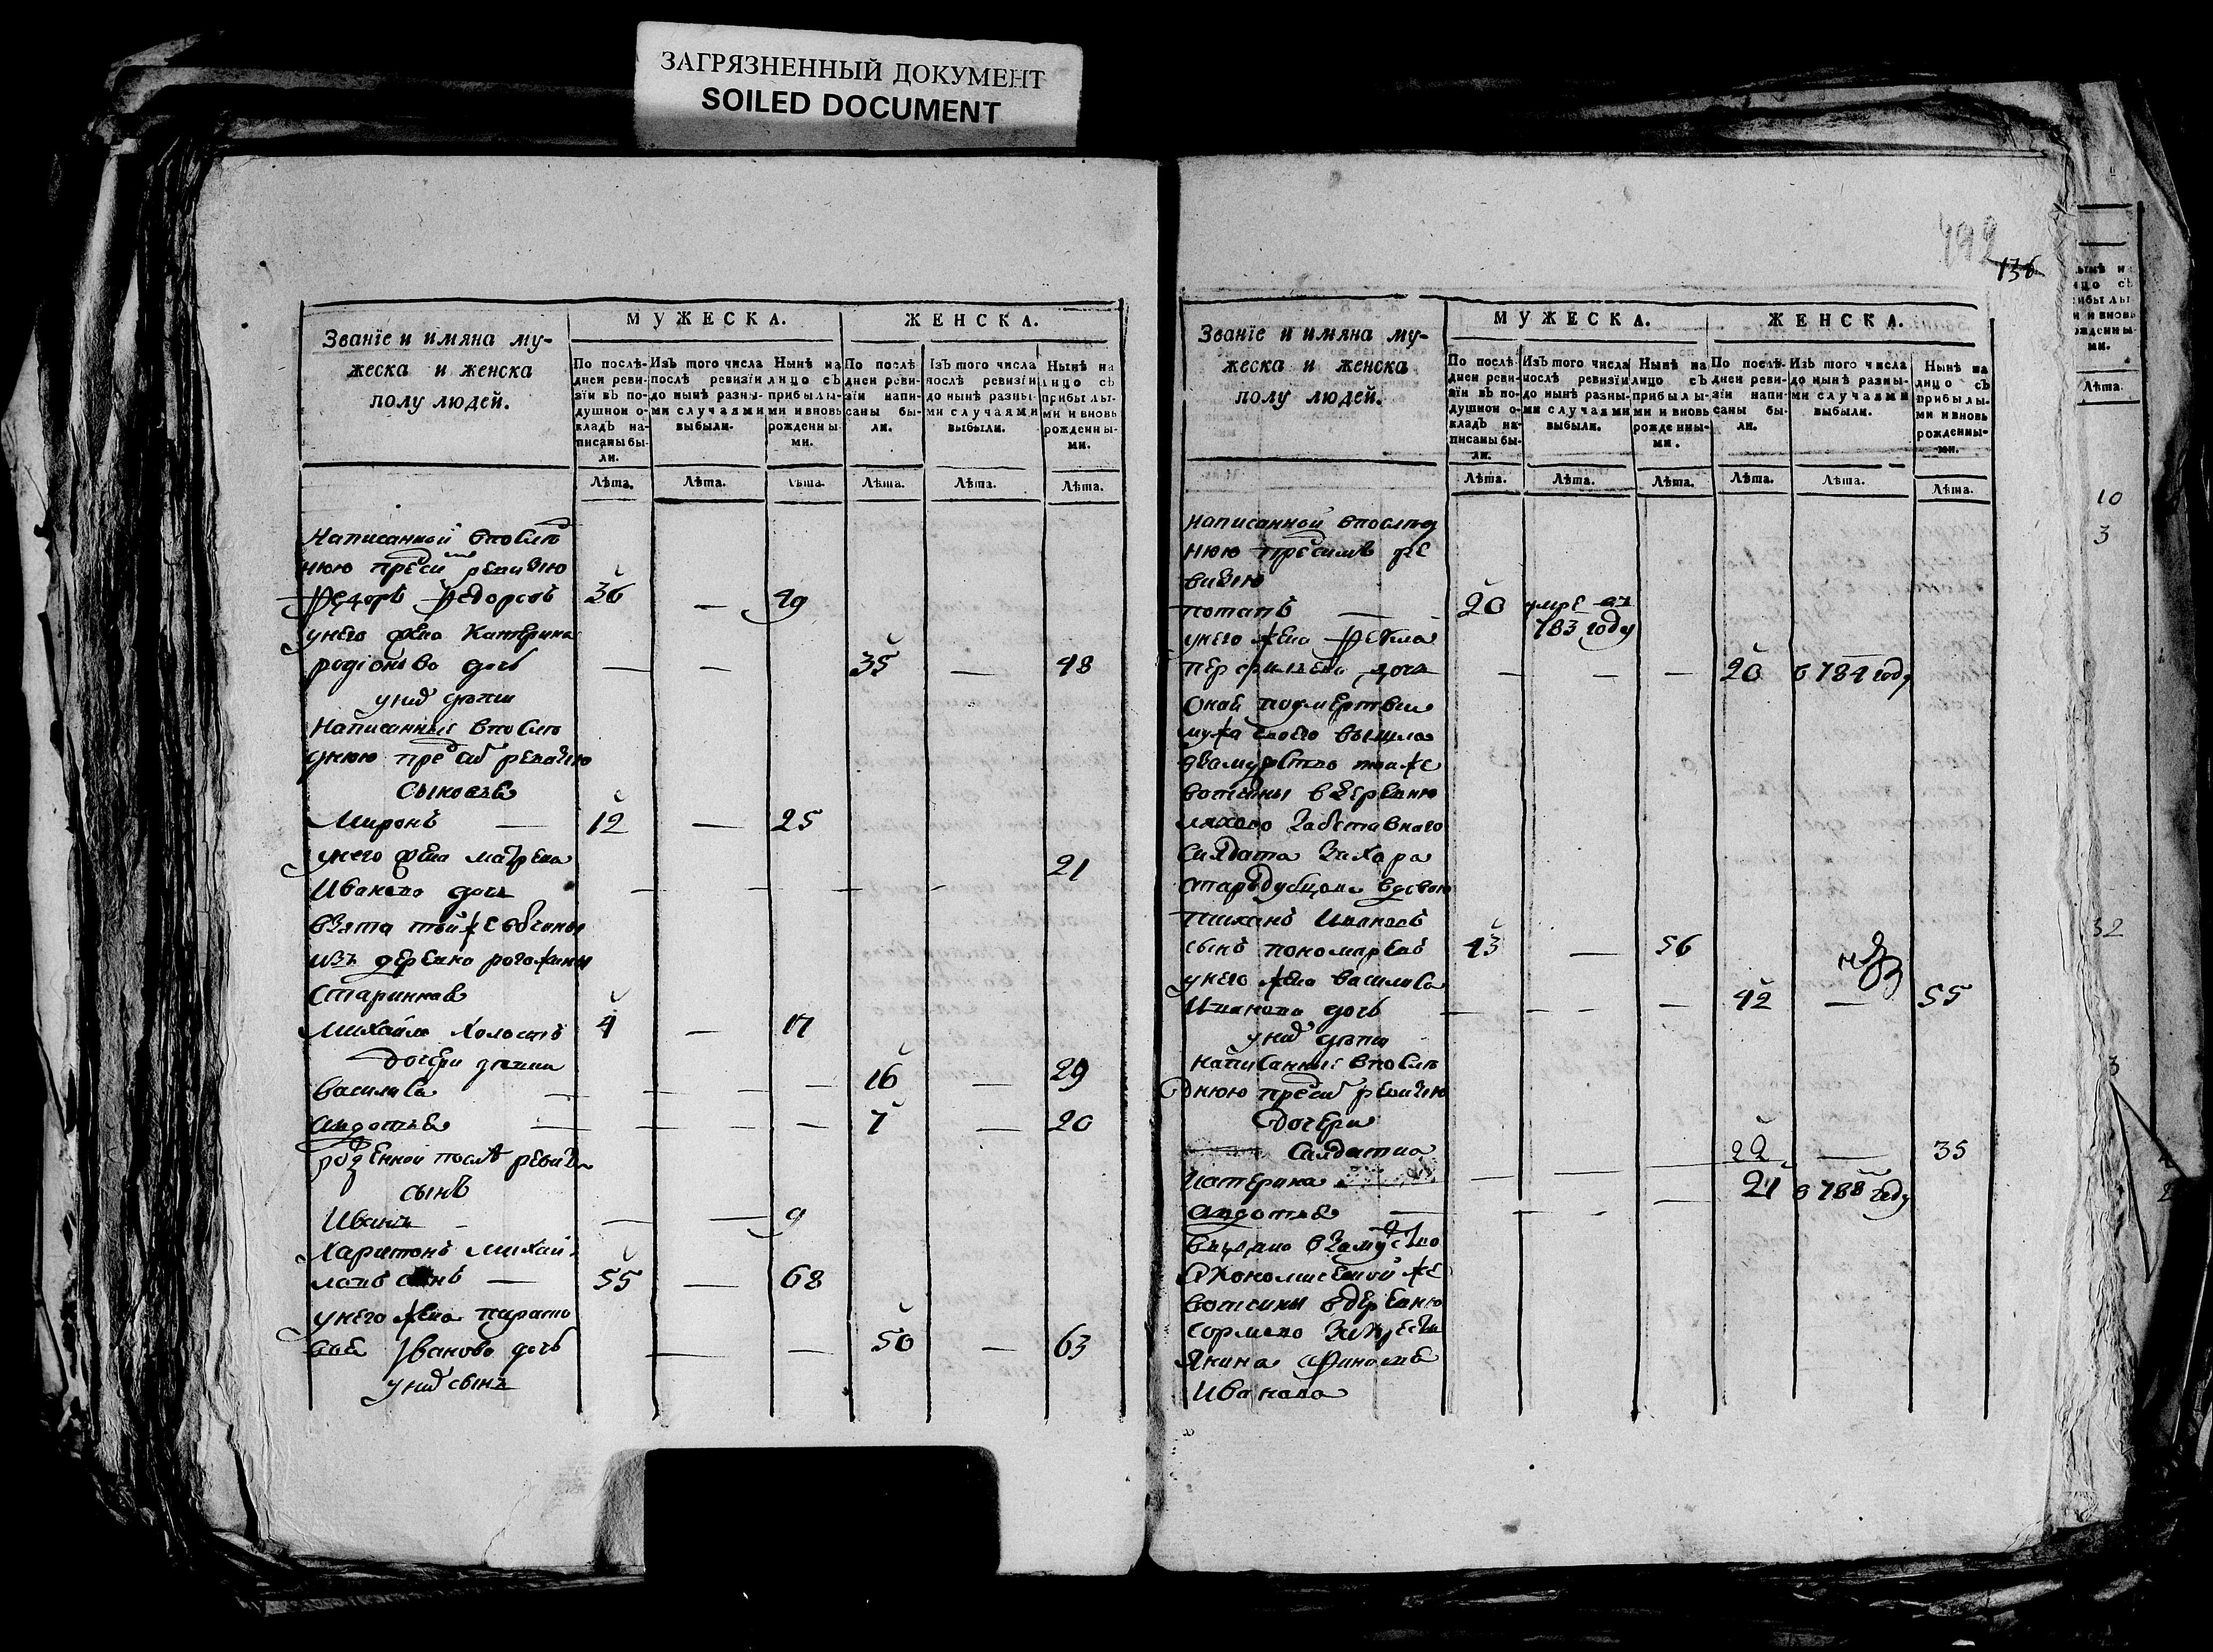 ЗАГРЯЗНЕННЫЙ ДОКУМЕНТ
SOILED DOCUMENT
Званїе и имяна му-
жеска и женска
полу людей.
МУЖЕСКА.
ЖЕНСКА.
По послѣ-
дней реви-
зїи въ по-
душной о-
кладъ на-
писаны бы-
ли.
Изъ того числа
послѣ ревизїи
до нынѣ разны-
ми случаями
выбыли.
Нынѣ на
лицо съ
прибылы-
ми и вновь
рожденны
ми.
По послѣ
дней реви-
зїи напи-
саны бы-
ли.
Изъ того числа
послѣ ревизїи
до нынѣ разны-
ми случаями
выбыли.
Нынѣ на
лицо съ
прибылы-
ми и вновь
рожденны-
ми.
Лѣта. Лѣта. Лѣта. Лѣта. Лѣта. Лѣта.
Написанной впослѣ
нюю пред ревизию
Федоръ Федоровъ 36 — 49
унего жена Катерина
родіонова дочь — — 35 — 48
унихъ дѣти
Написанныя впослѣ
днюю пред ревизию
сыновья
Миронъ — 12 — 25
унего жена матрена 21
Иванова дочь — — — —
взята той же вотчины
изъ деревни рогожины
старинная
Михайла холостъ 4 — 17
дочери девки
василиса — — — — 16 — 29
авдотья — — — — 7 — 20
рожденной послѣ ревизи
сынъ
Иванъ — — 9
Харитонъ михай
ловъ сынъ — 55 — 68
унего жена параско
вья Иванова дочь — — 50 — 63
унихъ сынъ
492
136
Званїе и имяна му-
жеска и женска
полу людей.
МУЖЕСКА.
ЖЕНСКА.
По послѣ-
дней реви-
зїи въ по-
душной о-
кладъ на-
писаны бы-
ли.
Изъ того числа
послѣ ревизїи
до нынѣ разны-
ми случаями
выбыли.
Нынѣ на
лицо съ
прибылы-
ми и вновь
рожденны-
ми.
По послѣ-
дней реви-
зїи напи-
саны бы-
ли.
Изъ того числа
до нынѣ разны-
ми случаями
выбыли.
Нынѣ на
лицо съ
прибылы-
ми и вновь
рожденны-
ми.
Лѣта. Лѣта. Лѣта. Лѣта. Лѣта. Лѣта.
написанной впослед
нюю ре
визию
потапъ — 20 умре въ
783 году
унего жена Фекла
перфильева дочь — — — 20 в 784 году
оная посмертви
мужа своего вышла
взамужство тойже
вотчины в деревню
ляхово заотставнаго
салдата Захара
стародубцова вдовою
тиханъ Ивановъ
сынъ пономаревъ 43 — 56
унего жена василиса
Иванова дочь — — — — 42 — 55
унихъ дѣти
написанныя впослѣ
днюю пред ревизию
дочери
салдатка 22 — 35
Катерина
авдотья — — — — 21 в 788 году
выдана взамужство
Економической же
вотчины в деревню
сормово за крестья
янина
Иванова
10
3
32
3
Лѣта.